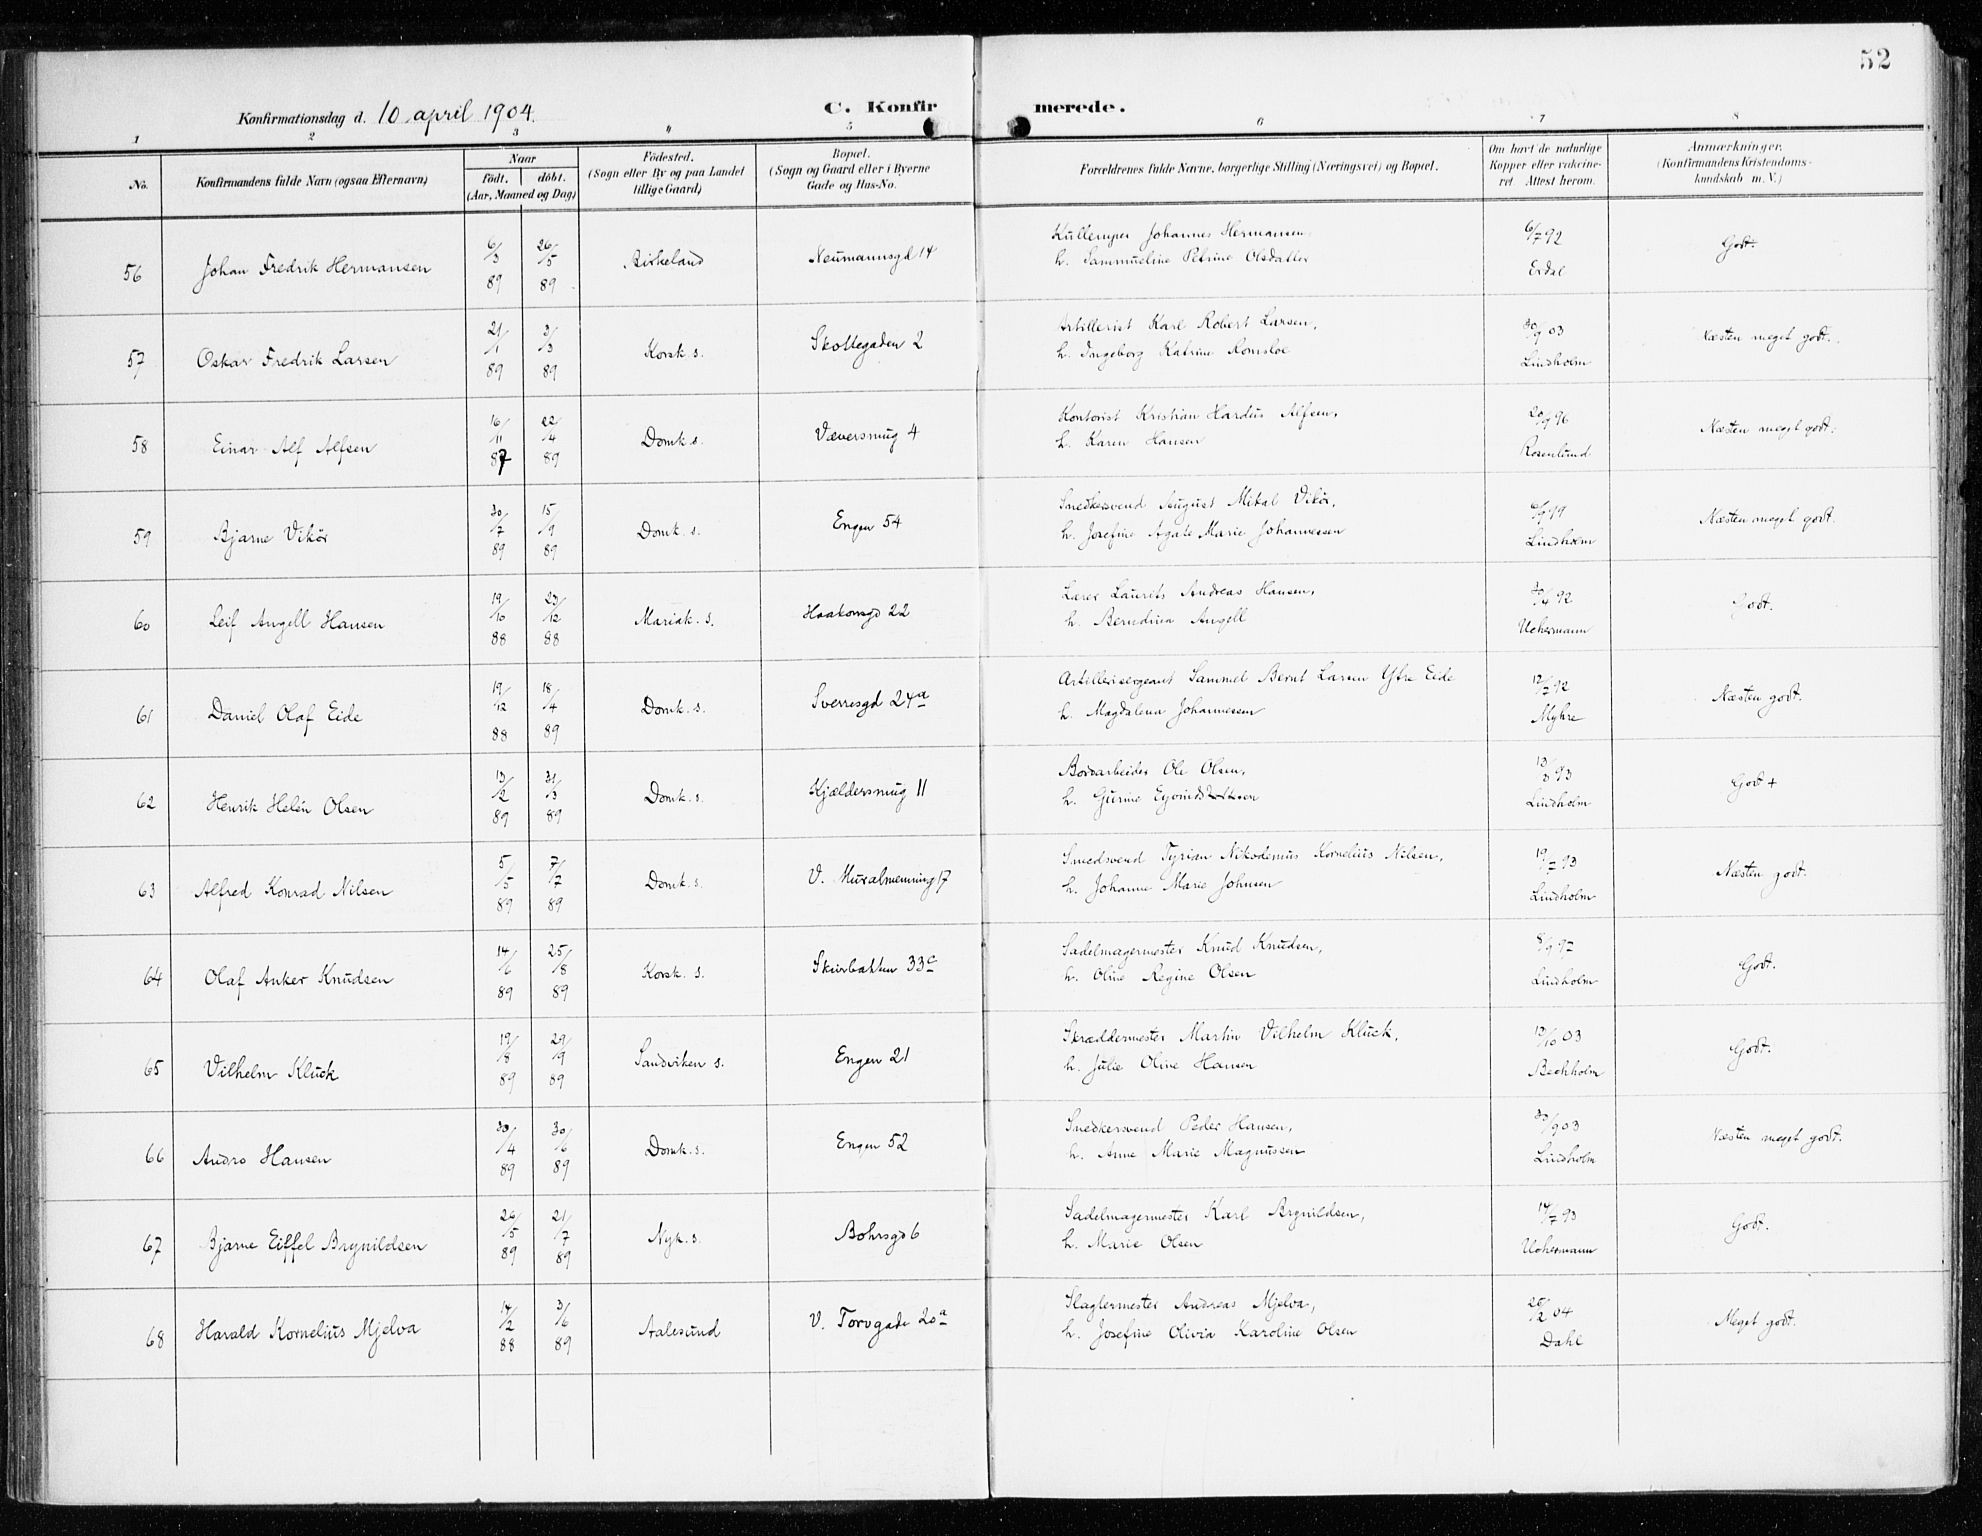 52
Konfirmationsdag d. 10 april 1904.
C. Konfirmerede.
1 2 3 4 5 6 7 8
No.
Konfirmandens fulde Navn (ogsaa Efternavn)
Naar
født. døbt.
(Aar, Maaned og Dag)
Fødested.
(Sogn eller By og paa Landet
tillige Gaard)
Bopæl.
(Sogn og Gaard eller i Byerne
Gade og Hus-No.
Forældrenes fulde Navne, borgerlige Stilling (Næringsvei) og Bopæl.
Om havt de naturlige
Kopper eller vakcine-
ret. Attest herom.
Anmærkninger.
(Konfirmandens Kristendoms-
kundskab m. V.)
56 Johan Fredrik Hermansen 6/3 89 26/5 89 Birkeland Neumannsgd 14 Kullemper Johannes Hermansen,
h. Sammueline Petrine Olsdatter 6/7 92 Erdal Godt.
57 Oskar Fredrik Larsen 21/1 89 3/3 89 Korsk. s. Skottegaden 2 Artillerist Karl Robert Larsen,
h. Ingeborg Katrine Romsloe 30/9 03 Lindholm Næsten meget godt.
58 Einar Alf Alfsen 16/11 87 22/4 89 Domk. s. Væversmug 4 Kontorist Kristian Hardus Alfsen,
h. Karen Hansen 20/9 96 Rosenlund Næsten meget godt.
59 Bjarne Vikør 30/7 89 15/9 89 Domk. s. Engen 54 Snedkersvend August Mikal Vikør,
h. Josefine Agate Marie Johannessen Lindholm Næsten meget godt.
60 Leif Angell Hansen 19/10 88 23/12 88 Mariak. s. Haakonsgd 22 Lærer Laurits Andreas Hansen,
h. Berndina Angell 92 Uchermann Godt.
61 Daniel Olaf Eide 19/12 88 18/4 89 Domk. s. Sverresgd 24a Artillerisergeant Sammel Bernt Larsen Ytre Eide
h. Magdalena Johannessen 12/7 92 Myhre Næsten godt.
62 Henrik Helén Olsen 13/2 89 31/3 89 Domk. s. Kjældersmug 11 Bordarbeider Ole Olsen,
h. Gurine 13/3 93 Lindholm Godt +
63 Alfred Konrad Nilsen 5/5 89 7/7 89 Domk. s. V. Muralmenning 17 Smedsvend Tyrian Nikodemus Kornelius Nilsen,
h. Johanne Marie Johnsen 19/7 93 Lindholm Næsten godt.
64 Olaf Anker Knudsen 14/6 89 25/8 89 Korsk. s. Skivebakken 33c Sadelmagermester Knud Knudsen,
h. Oline Regine Olsen 8/9 97 Lindholm Godt.
65 Vilhelm Kluck 19/8 89 29/9 89 Sandviken s. Engen 21 Skræddermester Martin Vilhelm Kluck,
h. Julie Oline Hansen 13/10 03 Bechholm Godt.
66 Andro Hansen 30/4 89 30/6 89 Domk. s. Engen 52 Snedkersvend Peder Hansen,
h. Anne Marie Magnussen 30/9 03 Lindholm Næsten meget godt.
67 Bjarne Eiffel Brynildsen 26/5 89 21/7 89 Nyk. s. Bohrsgd 6 Sadelmagermester Karl Brynildsen,
h. Marie Olsen 14/7 93 Uchermann Godt.
68 Harald Kornelius Mjelva 14/2 88 3/6 89 Aalesund V. Torvgade 20a Slagtermester Andreas Mjelva,
h. Josefine Olivia Karoline Olsen 25/2 04 Dahl Meget godt.